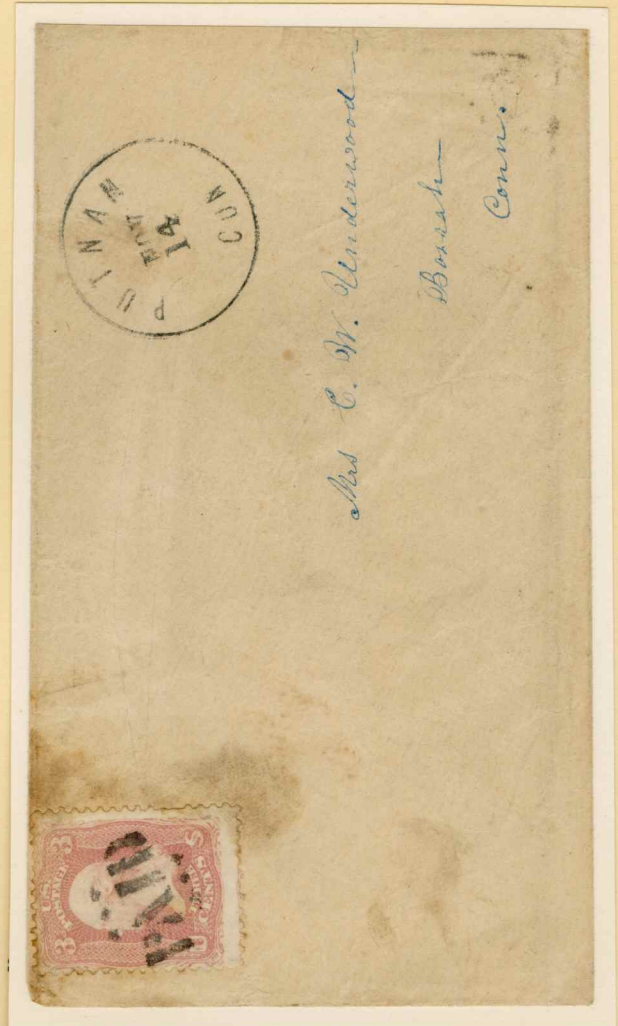 PUTNAM
NOV
14
CON
Mrs C. W. Underwood
Bozrah
Conn.
U.S.
POSTAGE
3 3
PAID
CENTS